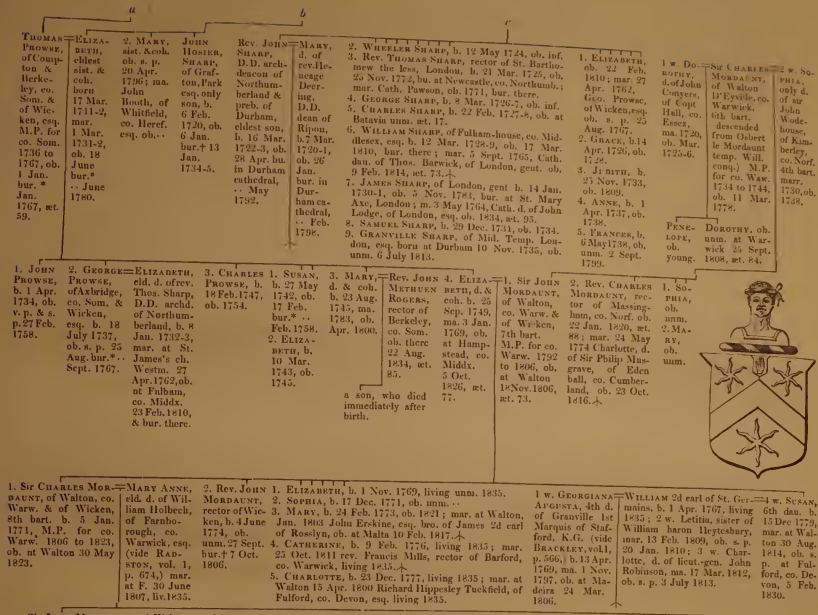 a
b
c
THOMAS
PROWSE,
of Comp-
ton &
Berke-
ley, co.
Som. &
of Wic-
ken, esq.
M.P. for
co. Som.
1736 to
1767, ob.
1 Jan.
bur. *
Jan.
1767, æt.
59.
ELIZA-
BETH,
eldest
sist. &
coh.
born
17 Mar.
1711-2,
mar.
1 Mar.
1731-2,
ob. 18
June
bur.*
·· June
1780.
2. MARY,
sist. & coh.
ob. s. p.
20 Apr.
1796; ma.
John
Booth, of
Whitfield,
co. Heref.
esq. ob.··
JOHN
HOSIER,
SHARP,
of Graf-
ton, Park
esq. only
son, b.
6 Feb.
1720, ob.
6 Jan.
bur.† 13
Jan.
1734-5.
Rev. JOHN
SHARP,
D.D. arch-
deacon of
Northum-
berland &
preb. of
Durham,
eldest son,
b. 16 Mar.
1722-3, ob.
28 Apr. bu.
in Durham
cathedral,
·· May
1792.
MARY,
d. of
rev. He-
neage
Deer-
ing,
D.D.
dean of
Ripon,
b. 7 Mar.
1720-1,
ob. 26
Jan.
bur. in
Dur-
ham ca-
thedral,
·· Feb.
1798.
2. WHEELER SHARP, b. 12 May 1724, ob. inf.
3. Rev. THOMAS SHARP, rector of St. Bartho-
mew the less, London, b. 21 Mar. 1725, ob.
25 Nov. 1772, bu. at Newcastle, co. Northumb.;
mar. Cath. Pawson, ob. 1771, bur. there.
4. GEORGE SHARP, b. 8 Mar. 1726-7, ob. inf.
5. CHARLES SHARP, b. 22 Feb. 1727-8, ob. at
Batavia unm. æt. 17.
6. WILLIAM SHARP, of Fulham-house, co. Mid-
dlesex, esq. b. 12 Mar. 1728-9, ob. 17 Mar.
1810, bur. there; mar. 5 Sept. 1765, Cath.
dau. of Thos. Barwick, of London, gent. ob.
9 Feb. 1814, æt. 73.
7. JAMES SHARP, of London, gent b. 14 Jan.
1730-1, ob. 5 Nov. 1783, bur. at St. Mary
Axe, London; m. 3 May 1764, Cath. d. of John
Lodge, of London, esq. ob. 1834, æt. 95.
8. SAMUEL SHARP, b. 29 Dec. 1731, ob. 1734.
9. GRANVILLE SHARP, of Mid. Temp. Lon-
don, esq. born at Durham 10 Nov. 1735, ob.
unm. 6 July 1813.
1. ELIZABETH,
ob. 22 Feb.
1810; mar. 27
Apr. 1762,
Geo. Prowse,
of Wicken, esq.
ob. s. p. 25
Aug. 1767.
2. GRACE, b. 14
Apr. 1726, ob.
1728.
3. JUDITH, b.
25 Nov. 1733,
ob. 1809.
4. ANNE, b. 1
Apr. 1737, ob.
1738.
5. FRANCES, b.
6 May 1738, ob.
unm. 2 Sept.
1799.
1 w. DO-
ROTHY,
d. of John
Conyers,
of Copt
Hall, co.
Essex,
ma. 1720,
ob. Mar.
1725-6.
Sir CHARLES
MORDAUNT,
of Walton
D'Eyville, co.
Warwick,
6th bart.
descended
from Osbert
le Mordaunt
temp. Will.
conq.) M.P.
for co. Waw.
1734 to 1744,
ob. 11 Mar.
1778.
2 w. SO-
PHIA,
only d.
of sir
John
Wode-
house,
of Kim-
berley,
co. Norf.
4th bart.
marr.
1730, ob.
1738.
PENE-
LOPE,
ob.
young.
DOROTHY, ob.
unm. at War-
wick 25 Sept.
1808, æt. 84.
1. JOHN
PROWSE,
b. 1 Apr.
1734, ob.
v. p. & s.
p. 27 Feb.
1758.
2. GEORGE
PROWSE,
of Axbridge,
co. Som. &
Wicken,
esq. b. 18
July 1737,
ob. s. p. 25
Aug. bur.* ··
Sept. 1767.
ELIZABETH,
eld. d. of rev.
Thos. Sharp,
D.D. archd.
of Northum-
berland, b. 8
Jan. 1732-3,
mar. at St.
James's ch.
Westm. 27
Apr. 1762, ob.
at Fulham,
co. Middx.
23 Feb. 1810,
& bur. there.
3. CHARLES
PROWSE, b.
18 Feb. 1747,
ob. 1754.
1. SUSAN,
b. 27 May
1742, ob.
17 Feb.
bur.* ··
Feb. 1758.
2. ELIZA-
BETH, b.
10 Mar.
1743, ob.
1745.
3. MARY,
d. & coh.
b. 23 Aug.
1745, ma.
1783, ob.
Apr. 1800.
Rev. JOHN
METHUEN
ROGERS,
rector of
Berkeley,
co. Som.
ob. there
22 Aug.
1834, æt.
85.
a son, who died
immediately after
birth.
4. ELIZA-
BETH, d. &
coh. b. 25
Sep. 1749,
ma. 3 Jan.
1769, ob.
at Hamp-
stead, co.
Middx.
5 Oct.
1826, æt.
77.
1. Sir JOHN
MORDAUNT,
of Walton,
co. Warw. &
of Wicken,
7th bart.
M.P. for co.
Warw. 1792
to 1806, ob.
at Walton
18 Nov. 1806,
æt. 73.
2. Rev. CHARLES
MORDAUNT, rec-
tor of Massing-
ham, co. Norf. ob.
22 Jan. 1820, æt.
88; mar. 24 May
1774 Charlotte, d.
of Sir Philip Mus-
grave, of Eden
hall, co. Cumber-
land, ob. 23 Oct.
1816.
1. SO-
PHIA,
ob.
unm.
2. MA-
RY,
ob.
unm.
1. Sir CHARLES MOR-
DAUNT, of Walton, co.
Warw. & of Wicken,
8th bart. b. 5 Jan.
1771, M.P. for co.
Warw. 1806 to 1823,
ob. at Walton 30 May
1823.
MARY ANNE,
eld. d. of Wil-
liam Holbech,
of Farnbo-
rough, co.
Warwick, esq.
(vide RAD-
STON, vol. 1,
p. 674,) mar.
at F. 30 June
1807, liv. 1835.
2. Rev. JOHN
MORDAUNT,
rector of Wic-
ken, b. 4 June
1774, ob.
unm. 27 Sept.
bur.† 7 Oct.
1806.
1. ELIZABETH, b. 1 Nov. 1769, living unm. 1835.
2. SOPHIA, b. 17 Dec. 1771, ob. unm. ··
3. MARY, b. 24 Feb. 1773, ob. 1821; mar. at Walton,
Jan. 1803 John Erskine, esq. bro. of James 2d earl
of Rosslyn, ob. at Malta 10 Feb. 1817.
4. CATHERINE, b. 9 Feb. 1776, living 1835; mar.
25 Oct. 1811 rev. Francis Mills, rector of Barford,
co. Warwick, living 1835.
5. CHARLOTTE, b. 23 Dec. 1777, living 1835; mar. at
Walton 15 Apr. 1800 Richard Hippesley Tuckfield, of
Fulford, co. Devon, esq. living 1835.
1 w. GEORGIANA
AUGUSTA, 4th d.
of Granville 1st
Marquis of Staf-
ford, K.G. (vide
BRACKLEY, vol. 1,
p. 566,) b. 13 Apr.
1769, ma. 1 Nov.
1797, ob. at Ma-
deira 24 Mar.
1806.
WILLIAM 2d earl of St. Ger-
mains, b. 1 Apr. 1767, living
1835; 2 w. Letitia, sister of
William baron Heytesbury,
mar. 13 Feb. 1809, ob. s. p.
20 Jan. 1810; 3 w. Char-
lotte, d. of lieut.-gen. John
Robinson, ma. 17 Mar. 1812,
ob. s. p. 3 July 1813.
4 w. SUSAN,
6th dau. b.
15 Dec 1779,
mar. at Wal-
ton 30 Aug.
1814, ob. s.
p. at Ful-
ford, co. De-
von, 5 Feb.
1830.